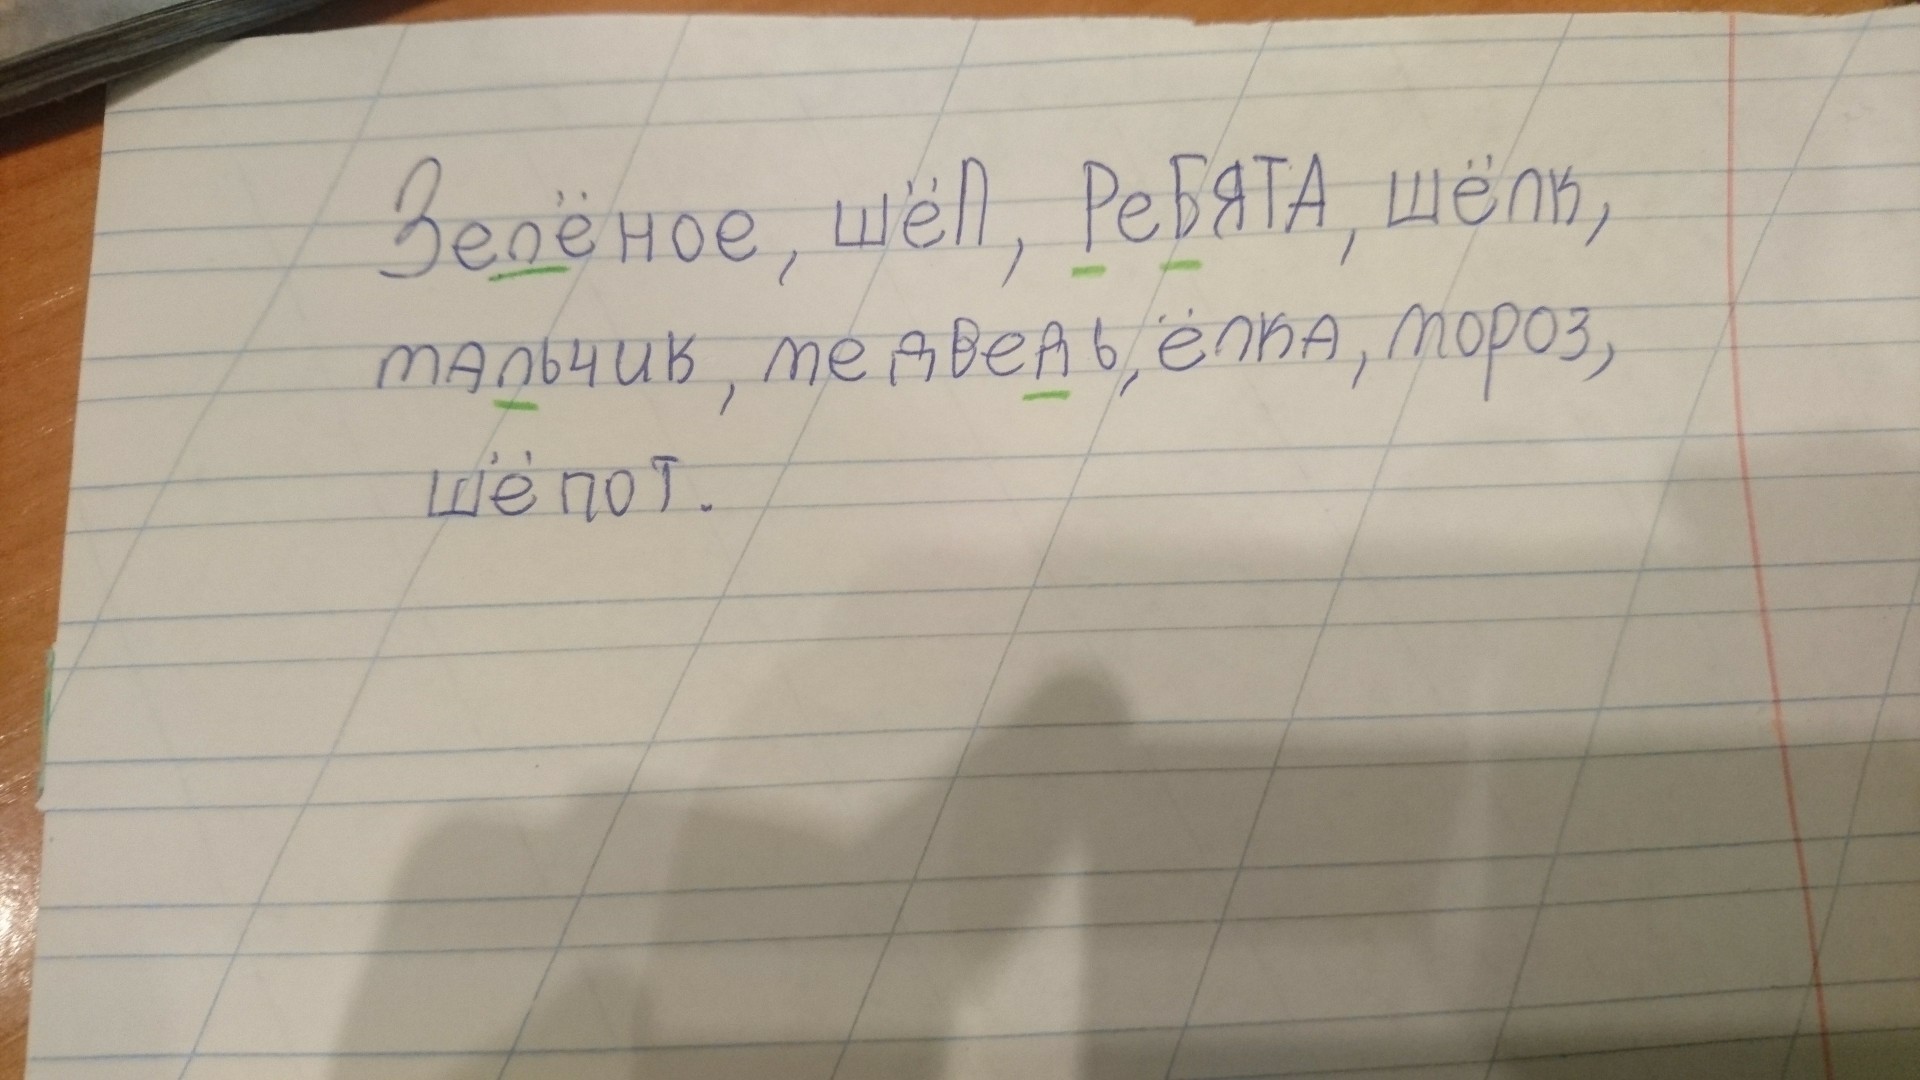 Зелёное, шёл, РеБЯТА, шёлк,
мальчик, медведь, ёлка, мороз,
шёпот.